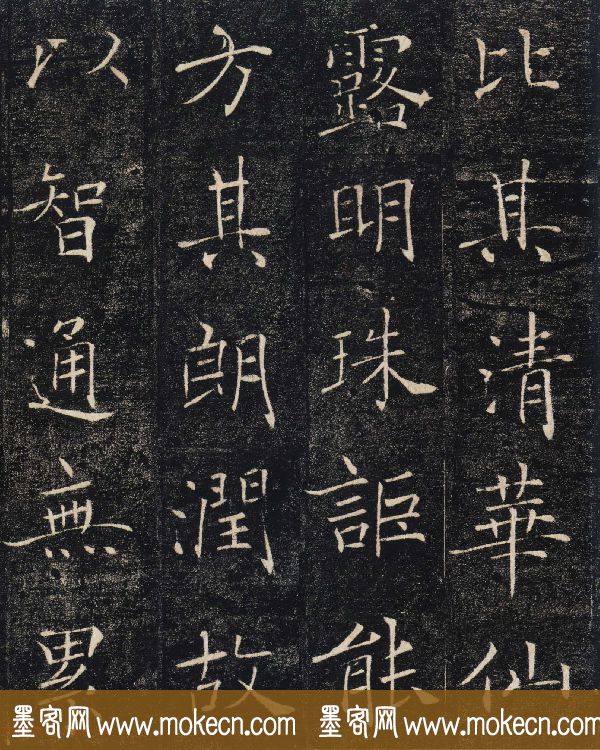 比其清華仙
露明珠詎能
方其朗潤故
以智通無累
墨客网 www.mokecn.com 墨客网 www.mokecn.com